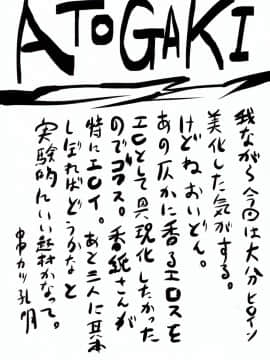 ATOGAKI
我ながら今回は大分ヒロイン
美化した気がする。
けどねおいどん。
あの仄かに香るエロスを
エロとして具現化したかった
のでゴワス。香紙さんが
特にエロイ。あと三人に基本
しぼればどうかなと
実験的にいい題材かなって。
中カツ孔明